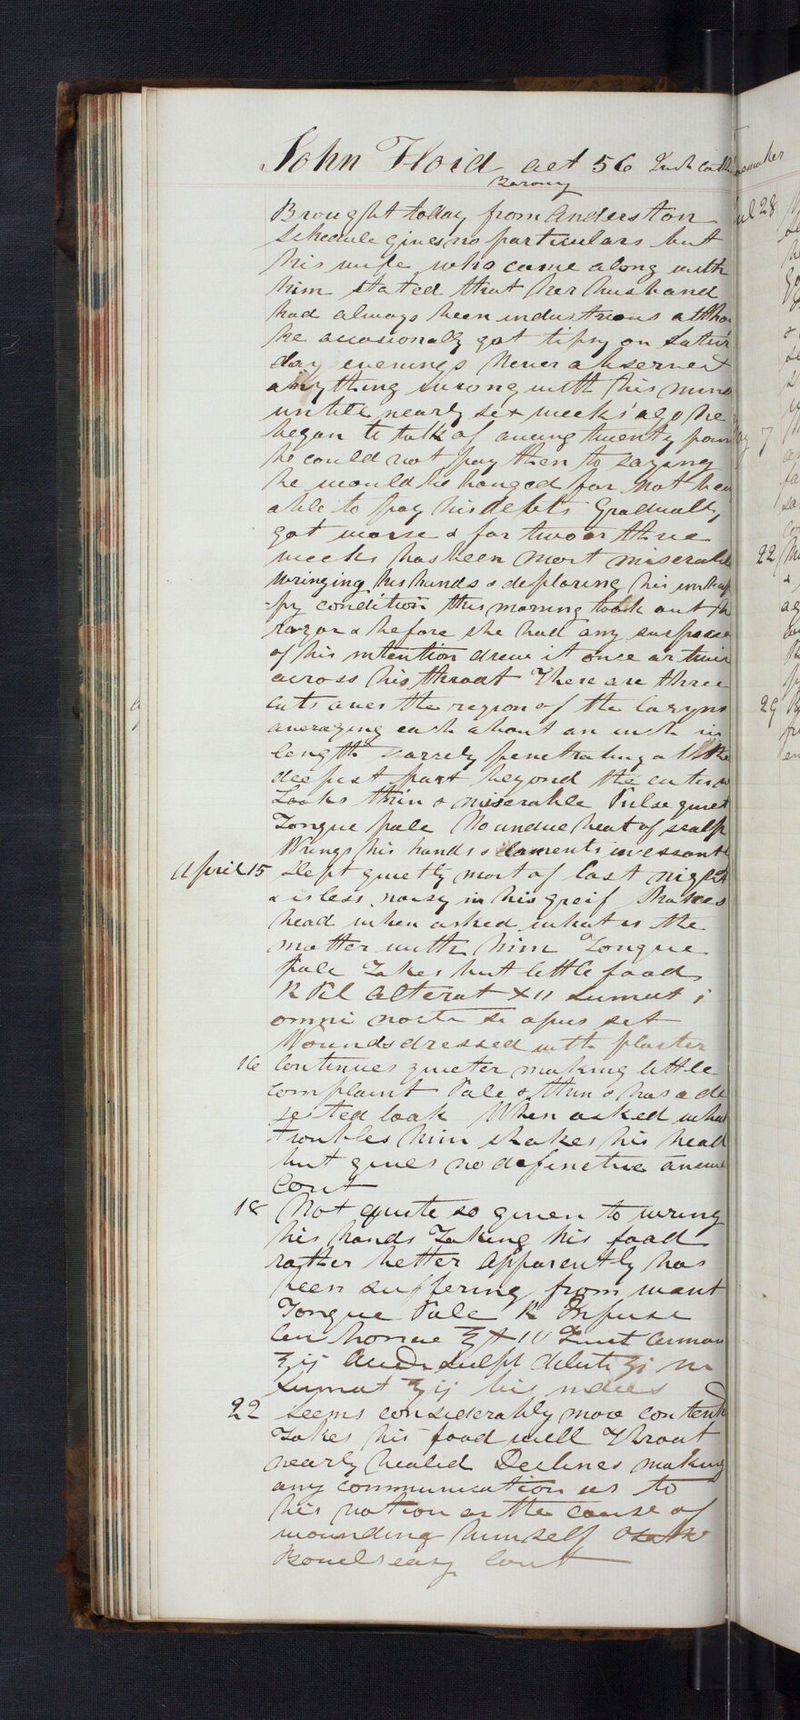 John Floid aet 56
Barony
Brought today from Anderston
Schedule gives no particulars but
his wife who came along with
him stated that her husband
had always been industrious altho
he occasionally got tipsy on Satur
day evenings Never observed
anything wrong with his mind
untill nearly six weeks ago he
began to talk of owing twenty poun
he could not pay then to saying
he would be hanged for not bein
able to pay his debts Gradually
got worse & for two or three
weeks has been most miserable
wringing his hands & deploring his unhap
-py condition this morning took out the
razor & before she had any suspicion
of his intention drew it once or twice
across his throat There are three
cuts over the region of the larynx
averaging each about an inch in
length scarcely penetrating at the
deepest part beyond the cutis
Looks thin & miserable Pulse quiet
Tongue pale No undue heat of scalp
Wrings his hands & laments incessantl
April 15 Slept quietly most of last night
& is less noisy in his greif Shakes
head when asked what is the
matter with him Tongue
Pale Takes but little food
R Pil Alterat XII Sumat i
omni nocte si opus sit
Wounds dressed with plaster
16 Continues quieter making little
complaint Pale & thin & has a de
jected look When asked what
troubles him shakes his head
but gives no definitive answe
Cont
18 Not quite so given to wring
his hands Taking his food
rather better Apparently has
been suffering from want
Tongue Pale R Infus
sumat ʒij
22 Seems considerably more content
Takes his food well Throat
nearly healed Declines making
any communication as to
his notion or the cause of
wounding himself
Bowels easy Cont
Jul 28
7
22
29